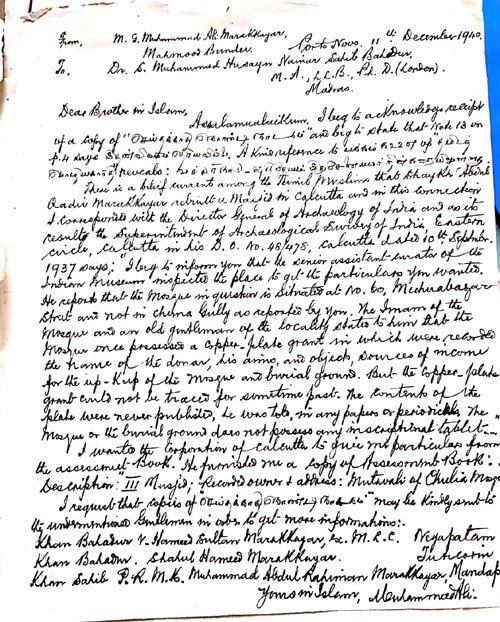 From, M. G. Muhammad Ali Marakkayar,
Mahmood Bunder.
Porto Novo. 11th December-1940.
To, Dr. S. Muhammad Husayn Nainar Sahib Bahadur,
M.A., L.L.B., Ph. D. (London).
Madras.
Dear Brother in Islam,
Assalamualaikum. I beg to acknowledge receipt
of a copy of and beg to state that "Note 13 on
p. 4 says A kind reference to
reveals:
There is a belief current among the Tamil Muslims that Shaykh Abdul
Qadir Marakkayar rebuilt a Masjid in Calcutta and in this connection
I corresponded with the Director General of Archaeology of India and as its
results the Superintendent of Archaeological Survey of India, Eastern
circle, Calcutta in his D.O. No. 48/475, Calcutta dated 10th September
1937 says; "I beg to inform you that the senior assistant curator of the
Indian Museum inspected the place to get the particulars you wanted.
He reports that the Mosque in question is situated at No. 60, Mechuabazar
Street and not in China Gully as reported by you. The Imam of the
Mosque and an old gentleman of the locality states to him that the
Mosque once possessed a copper-plate grant in which were recorded
the name of the donar, his aims, and object, sources of income
for the up-Kup of the Mosque and burial ground. But the copper-plate
grant could not be traced for sometime past. The contents of the
plate were never published, he was told, in any papers or periodicals. The
Mosque or the burial ground does not possess any inscriptional tablet.
I wanted the Corporation of Calcutta to give me particulars from
the assessment-Book. He provided me a copy of Assessment Book:
Description: III Musjid; Recorded owner & address: Mutavali of Chulia Mosque
I request that copies of may be kindly sent to
the undermentioned Gentlemen in order to get more informations:-
Khan Bahadur V. Hameed Sultan Marakkayar, ex. M.L.C. Negapatam
Khan Bahadur. Shahul Hameed Marakkayar. Tuticorin
Khan Sahib P. R. M. K. Muhammad Abdul Rahiman Marakkayar, Mandap
Yours in Islam, Muhammad Ali.